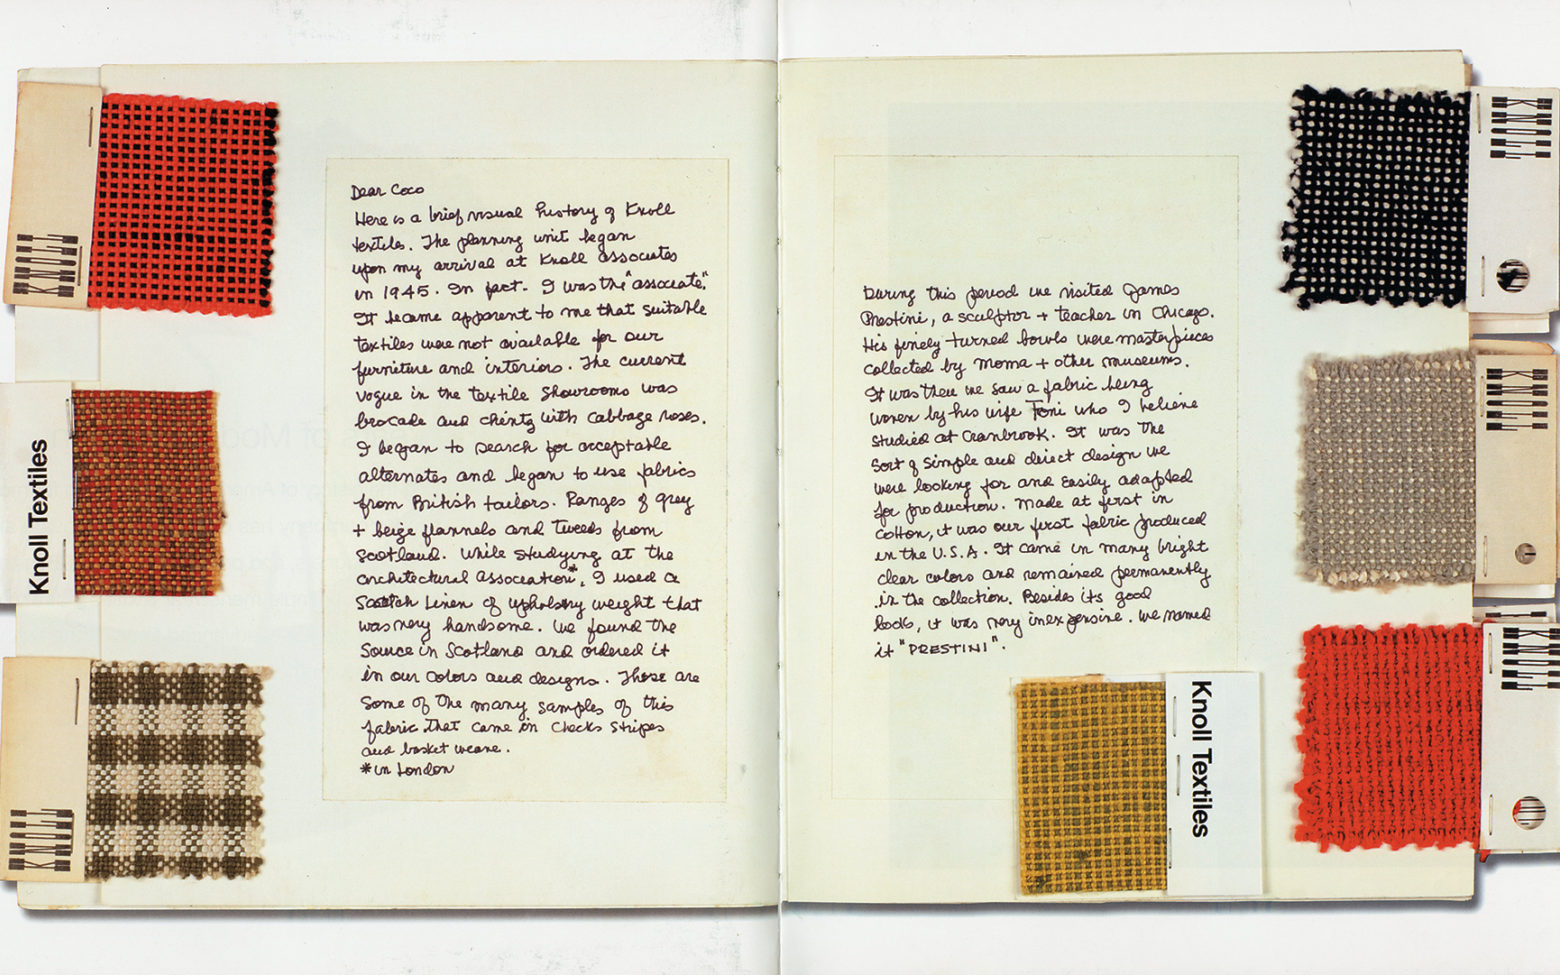 KNOLL
Knoll Textiles
KNOLL
Dear Coco
Here is a brief visual history of Knoll
textiles. The planning unit began
upon my arrival at Knoll associates
in 1945. In fact - I was the "associate".
It became apparent to me that suitable
textiles were not available for our
furniture and interiors. The current
vogue in the textile showrooms was
brocade and chintz with cabbage roses.
I began to search for acceptable
alternates and began to use fabrics
from British tailors. Ranges of grey
+ beige flannels and tweeds from
Scotland. While studying at the
architectural association*, I used a
Scotch linen of upholstry weight that
was very handsome. We found the
source in Scotland and ordered it
in our colors and designs. These are
some of the many samples of this
fabric that came in checks stripes
and basket weave.
*in London
During this period we visited James
Prestini, a sculptor + teacher in Chicago.
His finely turned bowls were masterpieces
collected by MoMA + other museums.
It was then we saw a fabric being
woven by his wife Toni who I believe
studied at Cranbrook. It was the
sort of simple and direct design we
were looking for and easily adapted
for production. Made at first in
cotton, it was our first fabric produced
in the U.S.A. It came in many bright
clear colors and remained permanently
in the collection. Besides its good
looks, it was very inexpensive. We named
it "PRESTINI".
Knoll Textiles
KNOLL
KNOLL
KNOLL